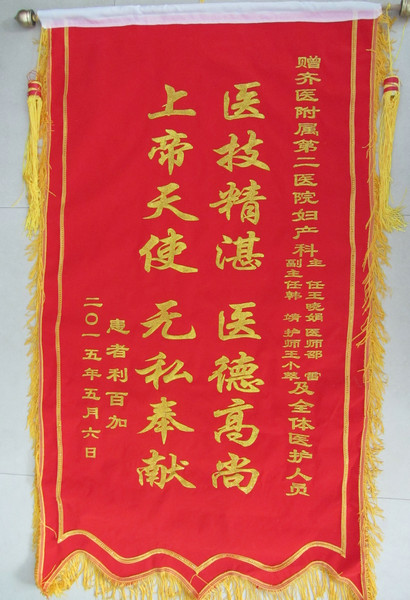 赠齐医附属第二医院妇产科主任王晓娟 医师邵雷
副主任韩靖 护师王小萃及全体医护人员
医技精湛 医德高尚
上帝天使 无私奉献
患者利百加
二〇一五年五月六日